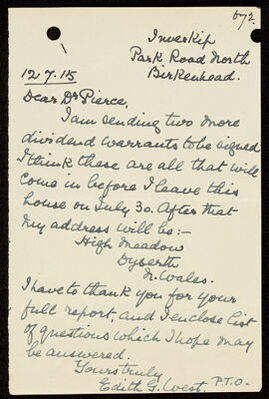 672
Inverkip
Park Road North
Birkenhead.
12.7.15
Dear Dr Pierce,
I am sending two more
dividend warrants to be signed
I think these are all that will
come in before I leave this
house on July 30. After that
my address will be:-
High Meadow
Dyserth
N. Wales.
I have to thank you for your
full report and I enclose list
of questions which I hope may
be answered.
Yours truly
Edith G. West. P.T.O.